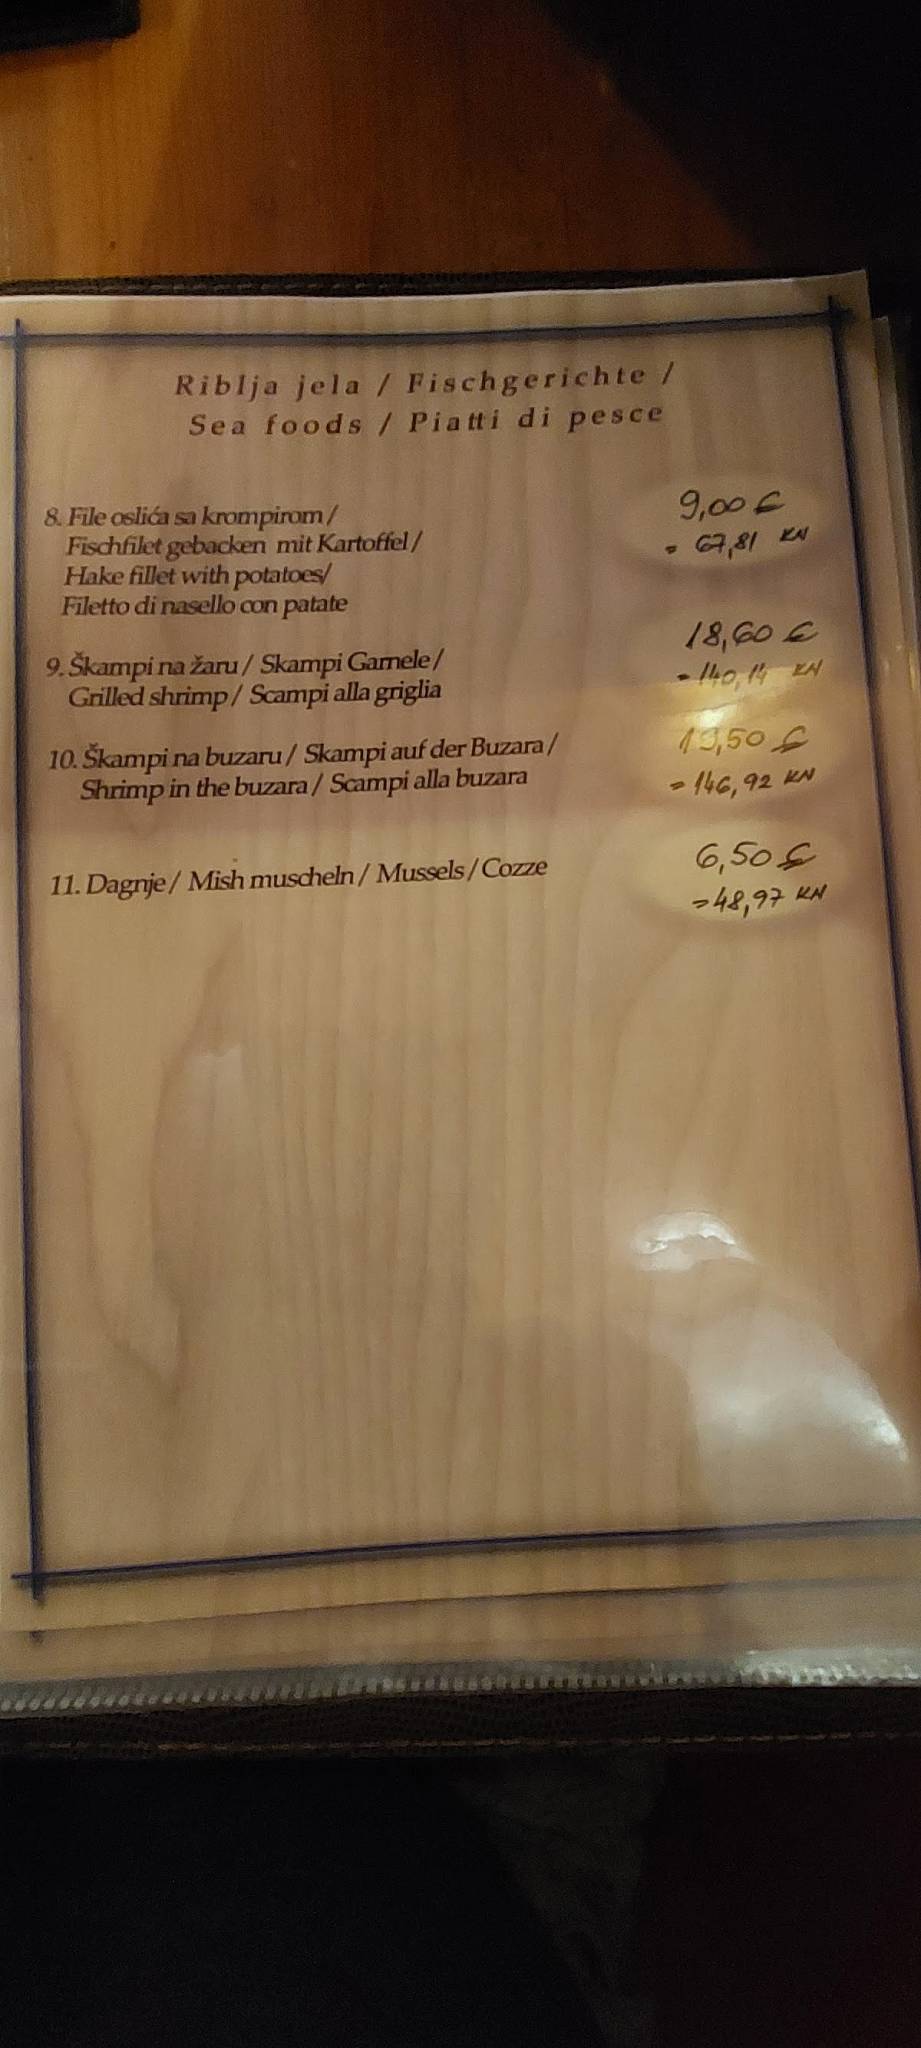 Riblja jela / Fischgerichte /
Sea foods / Piatti di pesce
8. File oslića sa krompirom /
Fischfilet gebacken mit Kartoffel /
Hake fillet with potatoes/
Filetto di nasello con patate
9,00 €
= 67,81 KN
9. Škampi na žaru / Skampi Garnele /
Grilled shrimp / Scampi alla griglia
18,60 €
= 140,14 KN
10. Škampi na buzaru / Skampi auf der Buzara /
Shrimp in the buzara / Scampi alla buzara
19,50 €
= 146,92 KN
11. Dagnje / Mish muscheln / Mussels / Cozze
6,50 €
= 48,97 KN